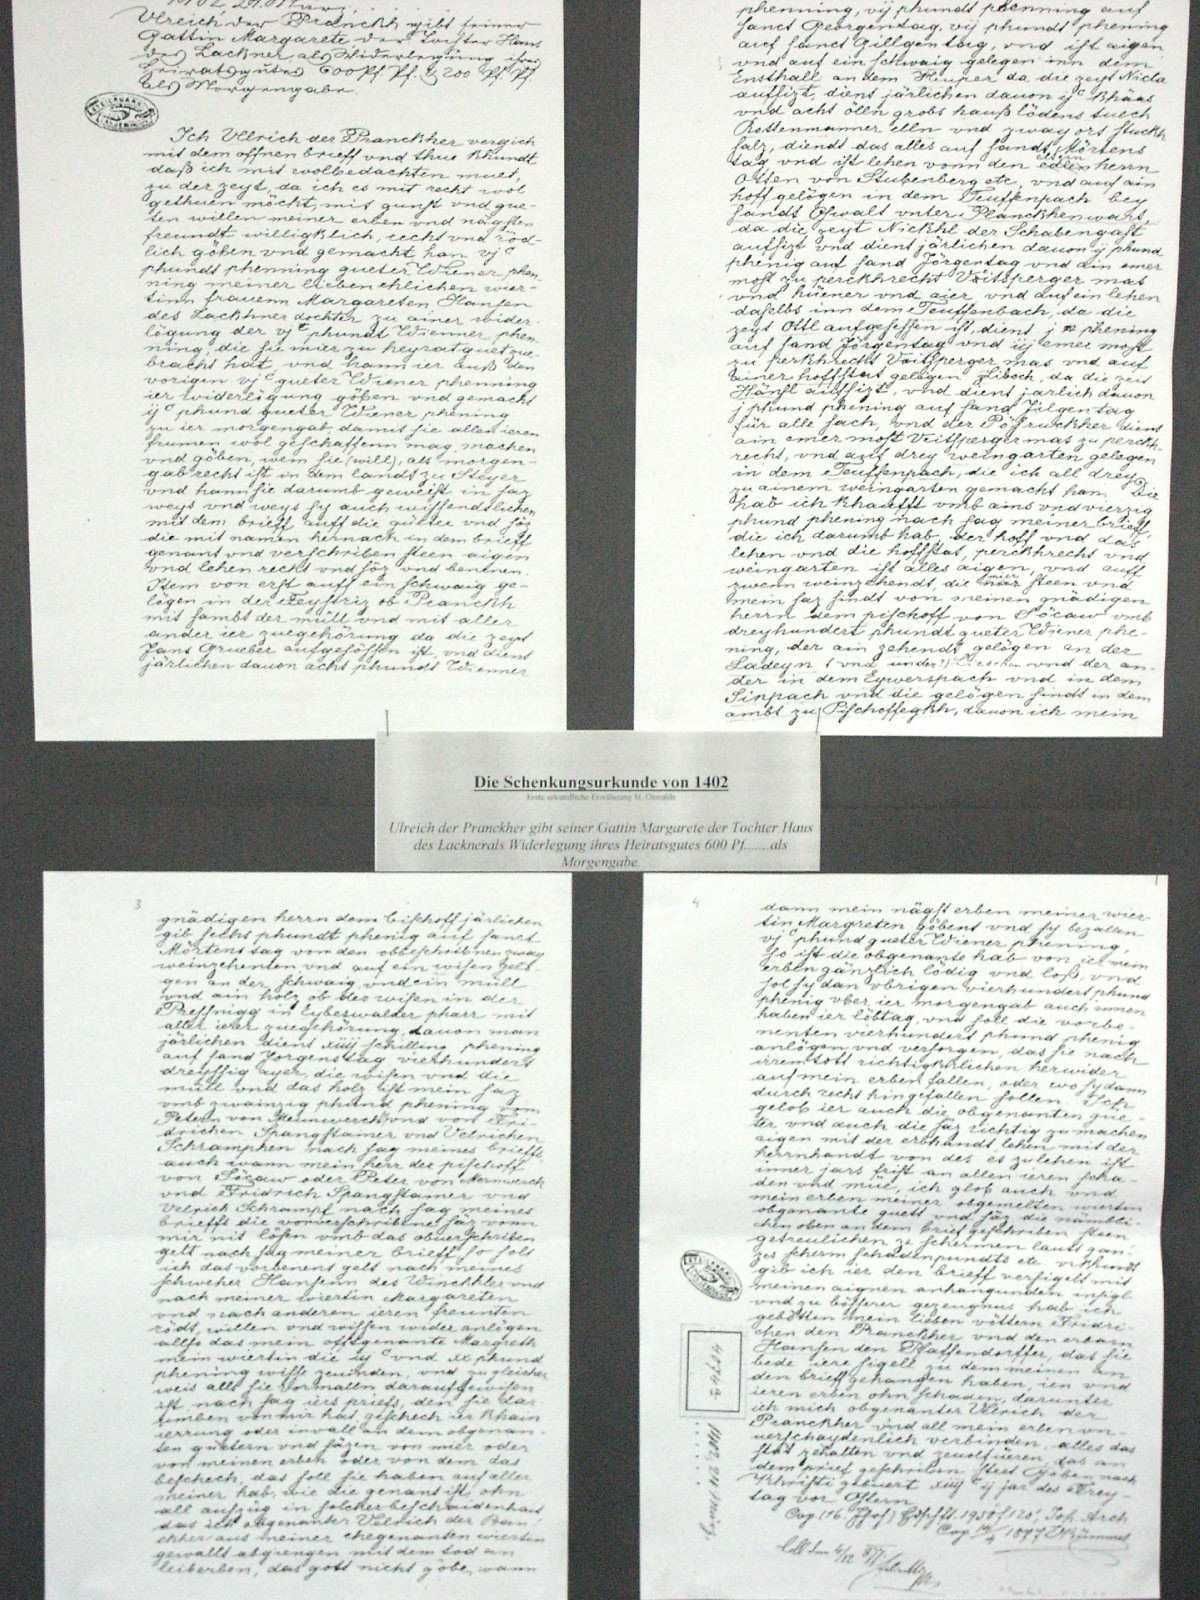 Ulreich der Pranckh gibt seiner
Gattin Margarete der Tochter Hans
des Lackner als Widerlegung ihres
Heiratsgutes 600 Pf. Pf. & 200 Pf. Pf.
als Morgengabe.
Ich Ullrich der Pranckher vergich
mit dem offnen brieff vnd thue khundt
daß ich mit wolbedachten muet,
zu der zeyt, da ich es mit recht wol
gethuen möcht, mit gunst vnd gue-
ten willen meiner erben vnd nägsten
freundt willigklich, recht vnd röd-
lich göben vnd gemacht han vj c
phundt phenning gueter Wiener phen-
ning meiner lieben ehlichen wier-
tinn frauenn Margareten Hansen
des Lackhner dochter zu ainer wider-
lögung der vj c phundt Wienner phen-
ning, die sie mier zu heyratguet zue-
bracht hat, vnd hann ier auß den
vorigen vj c gueter Wiener phenning
ier widerlegung göben vnd gemacht
ij c phund gueter Wiener phening
zu ier morgengab, damit sie allen ieren
frumen wol geschaffenn mag, machen
vnd göben, wem sie (will), als morgen-
gab recht ist in dem landt zu Steyer
vnd hann sie darumb geweist in saz
weys vnd weys sy auch wissendtlichen
mit dem brieff auff die güetter vnd söz
die mit namen hernach in dem brieff
genant vnd verschriben steen aigen
vnd lehen recht vnd söz vnd benenn.
Item von erst auff ein schwaig ge-
lögen in der Feystriz ob Pranckh
mit sambt der müll vnd mit aller
ander ier zuegehörung da die zeyt
Hans Grueber aufgesössen ist vnd dient
järlichen dauon acht phundt Wienner
phenning, vij phundt phenning auf
sanct Georgentag, vij phundt phening
auf sanct Gillgentag, vnd ist aigen
vnd auf ein schwaig gelegen inn dem
Ensthall an dem da die zeyt Nicla
auffizt, dient järlichen dauon ij c khäas
vnd acht ölln grobs hauß lödens tuech
Rottenmanner elln vnd zway ors stuckh
salz, diendt das alles auf sandt Mörtens
tag vnd ist lehen vonn den edlen herrn
Otten von Stubenberg etc, vnd auf ain
hoff gelögen in dem Teuffenpach bey
sandt Oswalt vnter Planckhenwart,
da die zeyt Nickhl der Schabengast
auffizt vnd dient järlichen dauon ij phund
phenig auf sand Jörgentag vnd ain emer
most zu perckhrecht Voitsperger mas
vnd hüener vnd aier vnd auf ein lehen
daselbs inn dem Teuffenbach, da die
zeyt Ottl aufgesessen ist, dient j phening
auf sand Jörgentag vnd iij emer most
zu perkhrecht Voitsperger mas vnd auf
ainer hoffstat gelegen Liboch, da die zeit
Hänsl auffizt, vnd dient järlich dauon
j phund phening auf sand Jilgentag
für alle sach, vnd der Pöstruckher dient
ain emer most Voitsperger mas zu perckh-
recht, vnd auf drey weingarten gelegen
in dem Teuffenpach, die ich all drey
zu ainem weingarten gemacht han. Die
hab ich khaufft vmb ains vnd vierzig
phund phening nach sag meiner brieff,
die ich darumb hab, der hoff vnd das
lehen vnd die hoffstat, perckhrecht vnd
weingarten ist alles aigen, vnd auff
zwenn weinzehendt die mier steen vnd
mein saz sindt von meinen gnädigen
herrn dem pischoff von Söcaw vmb
dreyhundert phundt gueter Wiener phe-
ning, der ain zehendt gelögen an der
Ladeyn vnd der an-
der in dem Eywerspach vnd in dem
Sinpach vnd die gelögen sindt in dem
ambt zu Pischoffegkh, dauon ich mein
Die Schenkungsurkunde von 1402
Erste urkundliche Erwähnung St. Oswalds
Ulreich der Pranckher gibt seiner Gattin Margarete der Tochter Haus
des Lacknerals Widerlegung ihres Heiratsgutes 600 Pf.......als
Morgengabe.
3
gnädigen herrn dem bischoff järlichen
gib sechs phundt phenig auf sanct
Mörtens tag von den obbeschribnen zway
weinzehenten vnd auf ein wisen gele-
gen an der schwaig, vnd ein müll
vnd ain holz ob des wisen in der
Pressnigg in Eybeswalder pharr mit
aller ierer zuegehörung, dauon man
järlichen dient xiiij schilling phening
auf sand Jorgenstag vierhundert
dreyssig ayer, die wisen vnd die
müll vnd das holz ist mein saz
vmb zwainzig phund phening vom
Petern von Mennwerch vnd von Fri-
drichen Spangstainer vnd Vlrichen
Schramphen nach sag meines brieffs
auch wann mein herr der pischoff
von Söcaw oder Peter von Mennwerch
vnd Fridrich Spangstainer vnd
Vlrich Schrampf nach sag meines
brieffs die vorverschribne säz vonn
mir nit lösen vmb das obverschriben
gelt nach sag meiner brieff, so sols
ich das vorbenent gelt nach meines
schweher Hansenn des Winckhler vnd
nach meiner wiertin Margareten
vnd nach anderen ieren freunten
rödt, willen vnd wissen wider anlögen
allso das mein offtgenante Margreth
mein wiertin die ij c vnd xx phund
phening wisse zevinden, vnd zu gleicher
weis alls sie vormalln darauf gewisen
ist, nach sag iers priefs, den sie dar
umben von mir hat, geschech ier khain
ierrung oder invall an dem obgenan-
ten güetern vnd säzen von mier oder
von meinen erben oder von dem das
beschech, das soll sie haben auf aller
meiner hab, wie die genant ist ohn
all aufzug in solcher beschaidenhait
das ich obgenanter Vlrich der Pran-
ckher aus meiner ehegenanten wierten
gewallt abgiengen mit dem tod an
leiberben, das gott nicht göbe, wann
4
dann mein nägst erben meiner wier-
tin Margreten göbent vnd sy bezallen
vj c phund gueter Wiener phening,
so ist die obgenante hab von ier mein
erben gänzlich lödig vnd loß, vnd
sol sy dan vbrigen vierhundert phund
phenig vber ier morgengab auch innen
haben ier löbtag, vnd soll die vorbe-
nenten vierhundert phund phenig
anlögen vnd versorgen, das sie nach
irem todt richtigkhlichen herwider
auf mein erben fallen, oder wo sy dann
durch recht hingefallen sollen. Ich
gelob ier auch die obgenanten güe-
ter vnd auch die säz richtig zu machen
aigen mit der erbhandt lehen mit der
herrnhandt von des es zu lehen ist
inner jars frist an allen ieren scha-
den vnd müe, ich glob auch vnd
mein erben meiner obgemelten wiertin
obgenante guett vnd säz die nambli-
chen oben an dem brief geschriben steen
getreulichen ze schermen lauts gan-
zes scherm schadenpundts etc vrkhundt
gib ich ier den brieff versigelt mit
meinen aignen anhangunden insigl
vnd zu bösserer gezeugnus hab ich
gebötten mein lieben vöttern Fridri-
chen den Pranckher vnd den erbarn
Hannsen den Pfaffendorffer, das sie
bede iere sigell zu dem meinen an
den brieff gehangen haben, ien vnd
ieren erben ohn schaden, darunter
ich mich obgenanter Vlrich der
Pranckher vnd all mein erben vn-
uerschaydenlich verbinden, alles das
stät zehalten vnd zeuolfüeren, das an
dem prief geschriben steet. Göben nach
Christi gebuert xiiij c ij jar des Frey-
tag vor Ostern